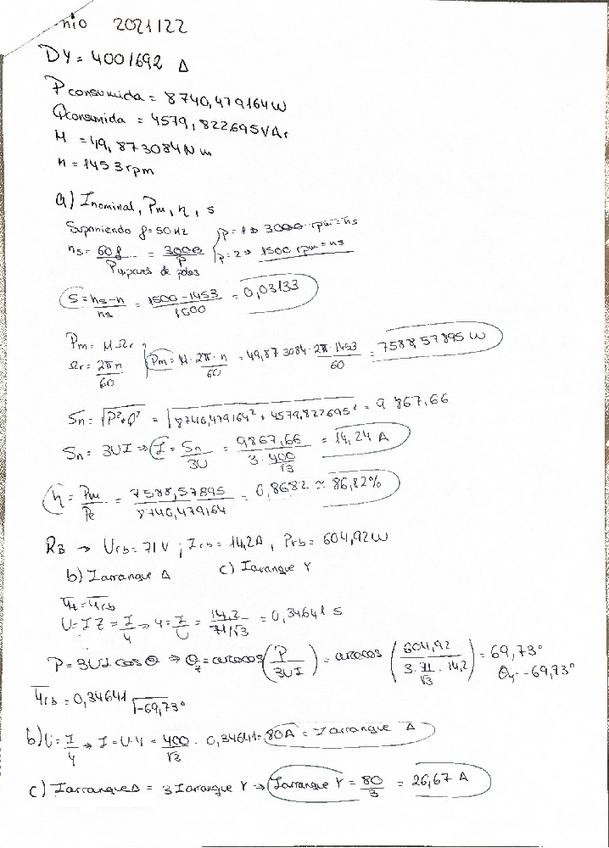 nio 2021/22
DY = 400/692 Δ
Pconsumida = 8740,479164W
Qconsumida = 4579,822695VAr
M = 49,873084Nm
n = 1453rpm
a) Inominal, Pm, η, s
Suponiendo f=50Hz
p=1 → 3000 rpm=ns
ns = 60f/P = 3000/p
p=2 → 1500 rpm=ns
P nºpares de polos
S = ns-n/ns = 1500-1453/1500 = 0,03133
Pm = M·Ωr
Ωr = 2πn/60
Pm = M·2π·n/60 = 49,873084·2π·1453/60 = 7588,57895 W
Sn = √P²+Q² = √8740,479164² + 4579,822695² = 9867,66
Sn = 3UI ⇒ I = Sn/3U = 9867,66/3·400/√3 = 14,24 A
η = Pm/Pe = 7588,57895/8740,479164 = 0,8682 ≈ 86,82%
RB → Urb = 71V ; Irb = 14,2A , Prb = 604,92W
b) Iarranque Δ c) Iarranque Y
U = I Z = I/Y → Y = I/U = 14,2/71/√3 = 0,34641 s
P = 3UI cos θ ⇒ θz = arccos(P/3UI) = arccos(604,92/3·71/√3·14,2) = 69,73°
θy = -69,73°
Yrb = 0,34641 |-69,73°
b) U = I/Y → I = U·Y = 400/√3 · 0,34641 = 80A = Iarranque Δ
c) IarranqueΔ = 3 Iarranque Y → Iarranque Y = 80/3 = 26,67 A